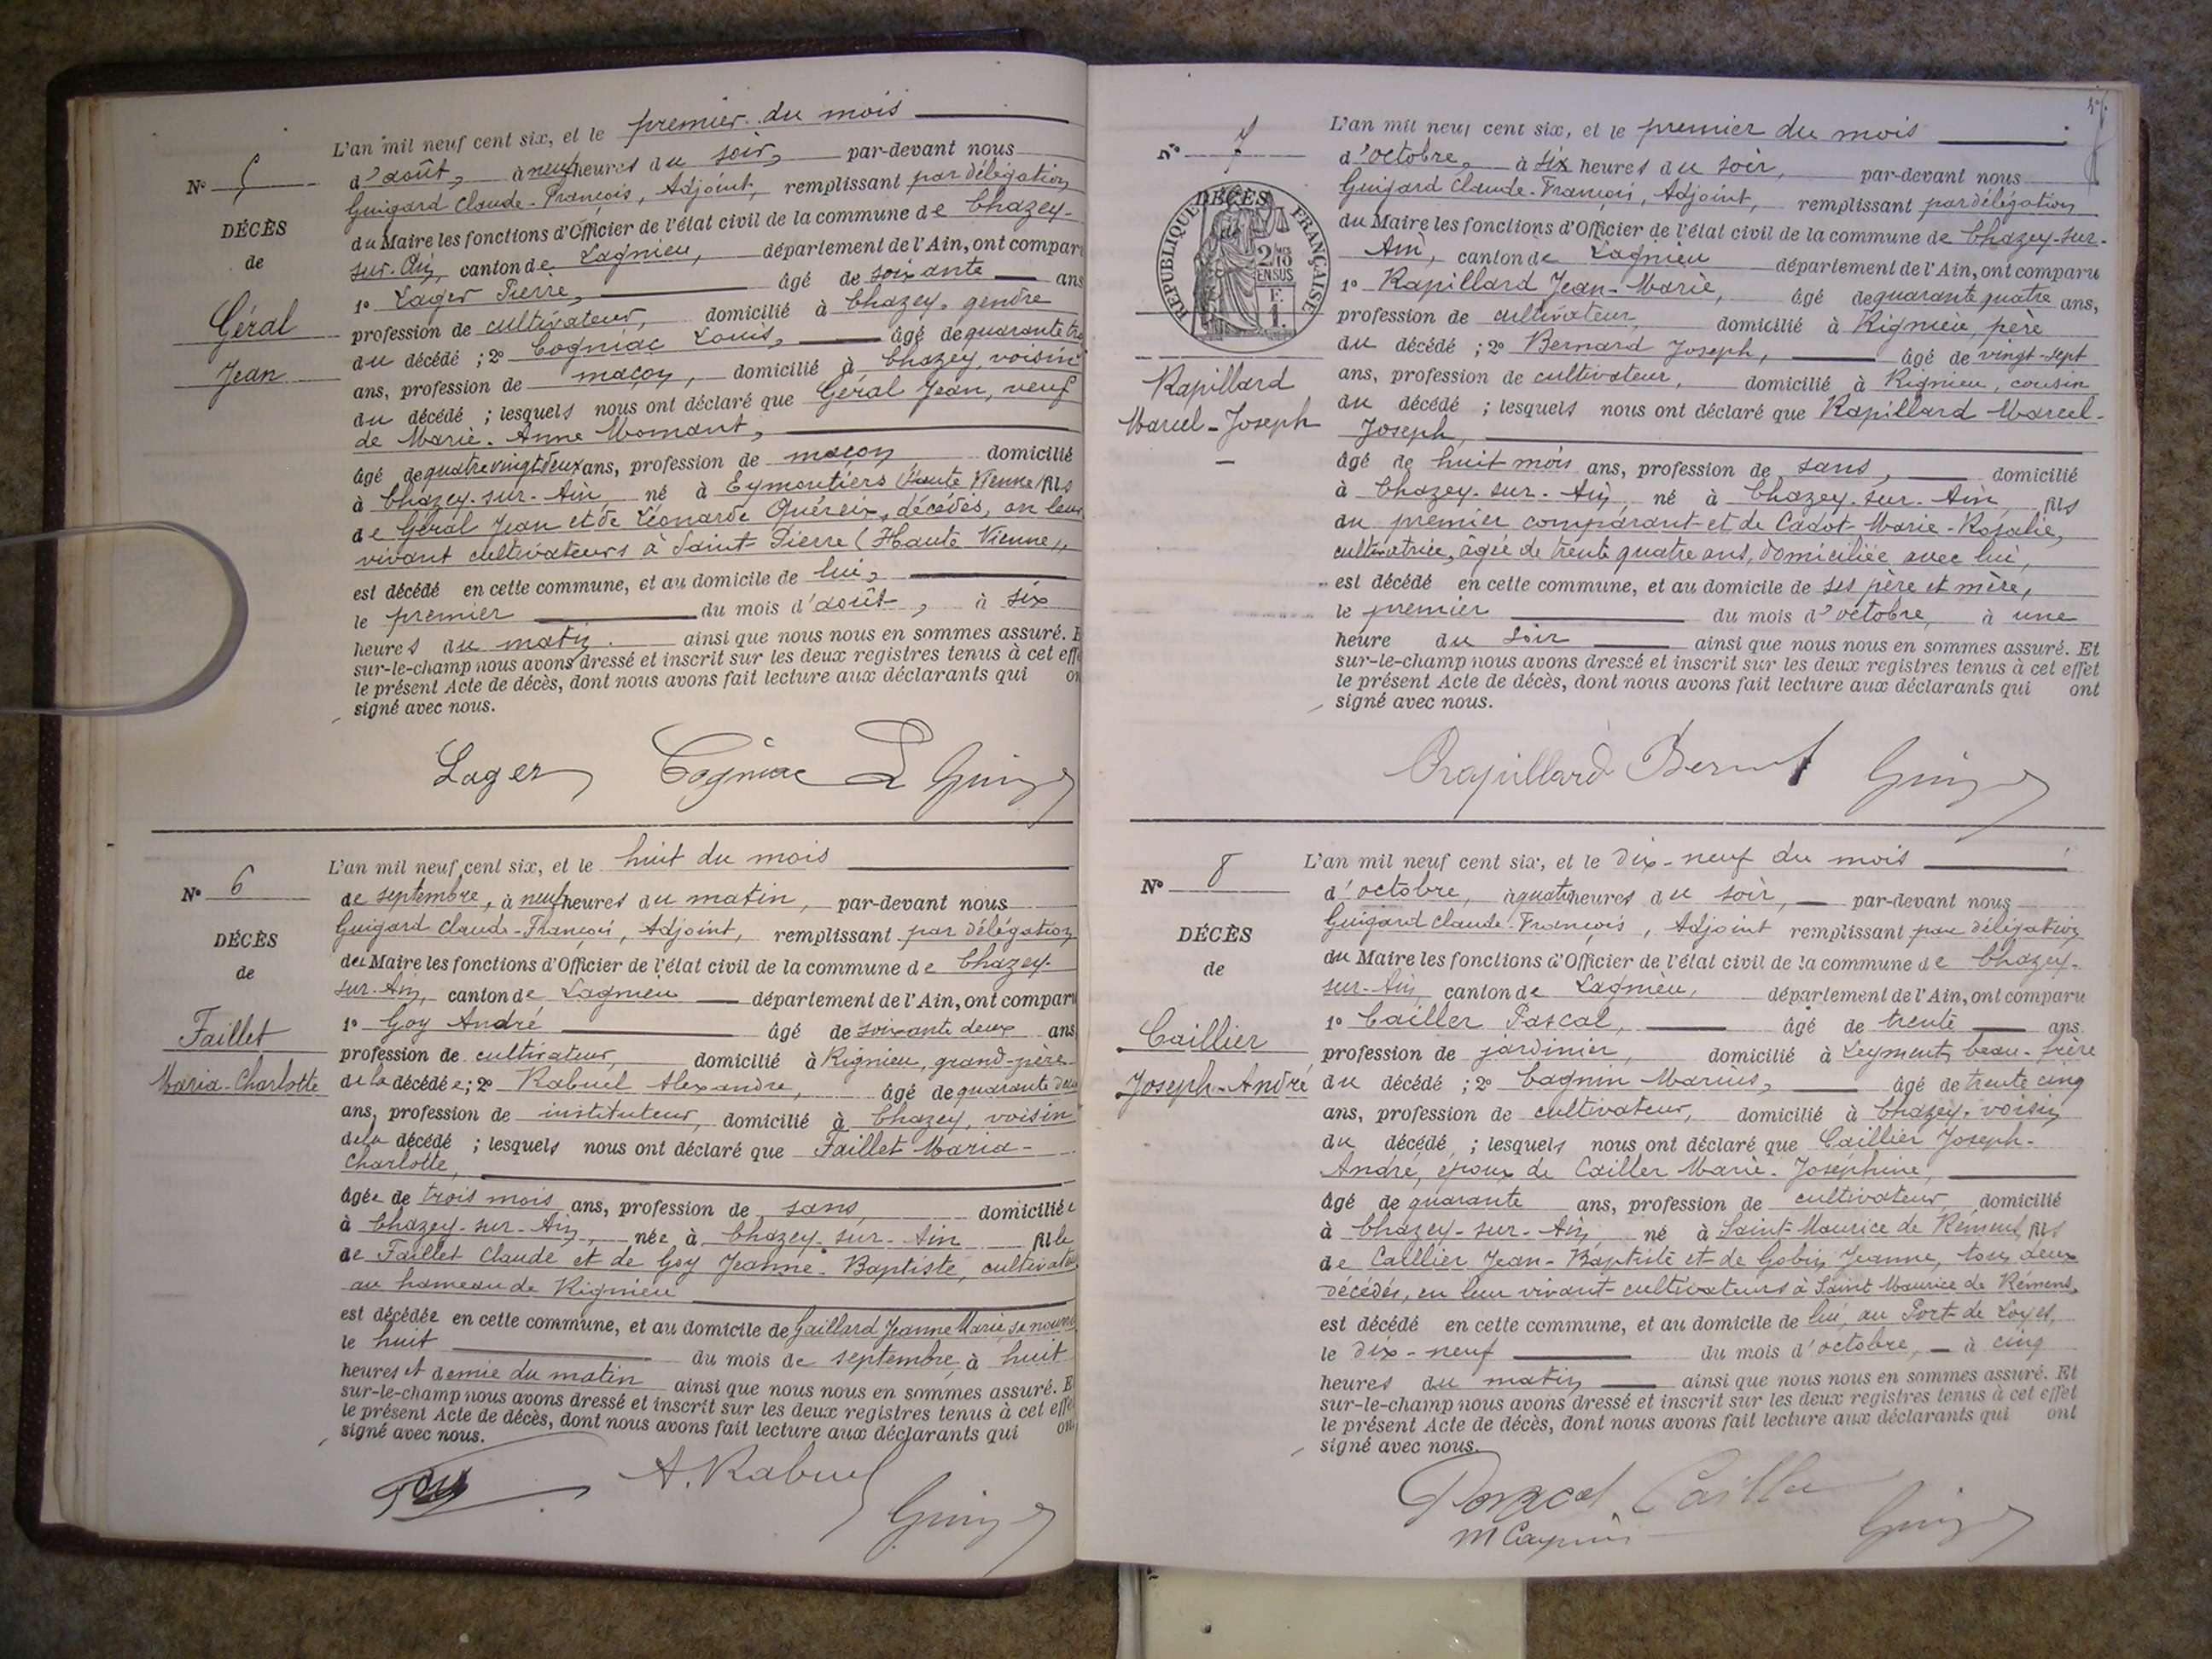 L'an mil neuf cent six, et le premier du mois
N° 5
d'août, à neuf heures du soir, par-devant nous
Guigard Claude-François, Adjoint, remplissant par délégation
DÉCÈS
du Maire les fonctions d'Officier de l'état civil de la commune de Chazey-
de
sur-Ain, canton de Lagnieu, département de l'Ain, ont compar
1° Lager Pierre, âgé de soixante ans
Géral
profession de cultivateur, domicilié à Chazey, gendre
du décédé ; 2° Cogniac Louis, âgé de quarante tro
Jean
ans, profession de maçon, domicilié à Chazey, voisin
du décédé ; lesquels nous ont déclaré que Géral Jean, veuf
de Marie-Anne Momant,
âgé de quatre vingt deux ans, profession de maçon domicilié
à Chazey-sur-Ain, né à Eymoutiers (Haute Vienne) fils
de Géral Jean et de Léonarde Quéreix, décédés, en leur
vivant cultivateurs à Saint-Pierre (Haute Vienne),
est décédé en cette commune, et au domicile de lui,
le premier du mois d'août, à six
heures du matin. ainsi que nous nous en sommes assuré. E
sur-le-champ nous avons dressé et inscrit sur les deux registres tenus à cet effe
le présent Acte de décès, dont nous avons fait lecture aux déclarants qui on
signé avec nous.
Lager Cogniac L Guig
L'an mil neuf cent six, et le huit du mois
N° 6
de septembre, à neuf heures du matin, par-devant nous
Guigard Claude-François, Adjoint, remplissant par délégation
DÉCÈS
du Maire les fonctions d'Officier de l'état civil de la commune de Chazey-
de
sur-Ain, canton de Lagnieu département de l'Ain, ont comparu
1° Goy André âgé de soixante deux ans
Faillet
profession de cultivateur, domicilié à Rignieu, grand-père
Maria-Charlotte
de la décédée ; 2° Rabuel Alexandre, âgé de quarante deux
ans, profession de instituteur, domicilié à Chazey, voisin
de la décédé ; lesquels nous ont déclaré que Faillet Maria-
Charlotte,
âgée de trois mois ans, profession de sans, domiciliée
à Chazey-sur-Ain, née à Chazey-sur-Ain fille
de Faillet Claude et de Goy Jeanne-Baptiste, cultivate
au hameau de Rignieu
est décédée en cette commune, et au domicile de Gaillard Jeanne Marie, sa nourri
le huit du mois de septembre, à huit
heures et demie du matin ainsi que nous nous en sommes assuré. E
sur-le-champ nous avons dressé et inscrit sur les deux registres tenus à cet effe
le présent Acte de décès, dont nous avons fait lecture aux déclarants qui on
signé avec nous.
Goy A. Rabuel
Guig
L'an mil neuf cent six, et le premier du mois
N° 7
d'octobre, à six heures du soir, par-devant nous
Guigard Claude-François, Adjoint, remplissant par délégation
DÉCÈS
RÉPUBLIQUE FRANÇAISE
2/10 EN SUS
du Maire les fonctions d'Officier de l'état civil de la commune de Chazey-sur-
Ain, canton de Lagnieu département de l'Ain, ont comparu
1° Rapillard Jean-Marie, âgé de quarante quatre ans,
profession de cultivateur, domicilié à Rignieu, père
du décédé ; 2° Bernard Joseph, âgé de vingt-sept
Rapillard
ans, profession de cultivateur, domicilié à Rignieu, cousin
du décédé ; lesquels nous ont déclaré que Rapillard Marcel-
Marcel-Joseph
Joseph,
âgé de huit mois ans, profession de sans, domicilié
à Chazey-sur-Ain, né à Chazey-sur-Ain, fils
du premier comparant et de Cadot Marie-Rosalie,
cultivatrice, âgée de trente quatre ans, domiciliée avec lui,
est décédé en cette commune, et au domicile de ses père et mère,
le premier du mois d'octobre, à une
heure du soir ainsi que nous nous en sommes assuré. Et
sur-le-champ nous avons dressé et inscrit sur les deux registres tenus à cet effet
le présent Acte de décès, dont nous avons fait lecture aux déclarants qui ont
signé avec nous.
Rapillard Guig
L'an mil neuf cent six, et le dix-neuf du mois
N° 8
d'octobre, à quatre heures du soir, par-devant nous
Guigard Claude-François, Adjoint remplissant par délégation
DÉCÈS
du Maire les fonctions d'Officier de l'état civil de la commune de Chazey-
de
sur-Ain, canton de Lagnieu, département de l'Ain, ont comparu
1° Cailler Pascal, âgé de trente ans
Caillier
profession de jardinier, domicilié à Leyment, beau-frère
Joseph-André
du décédé ; 2° Cagnin Marius, âgé de trente cinq
ans, profession de cultivateur, domicilié à Chazey, voisin
du décédé ; lesquels nous ont déclaré que Caillier Joseph-
André, époux de Cailler Marie-Joséphine,
âgé de quarante ans, profession de cultivateur, domicilié
à Chazey-sur-Ain, né à Saint-Maurice de Rémens, fils
de Caillier Jean-Baptiste et de Gobin Jeanne, tous deux
décédés, en leur vivant cultivateurs à Saint Maurice de Rémens,
est décédé en cette commune, et au domicile de lui, au Port de Loyes,
le dix-neuf du mois d'octobre, à cinq
heures du matin ainsi que nous nous en sommes assuré. Et
sur-le-champ nous avons dressé et inscrit sur les deux registres tenus à cet effet
le présent Acte de décès, dont nous avons fait lecture aux déclarants qui ont
signé avec nous.
Pascal Cailler
M Cagnin Guig